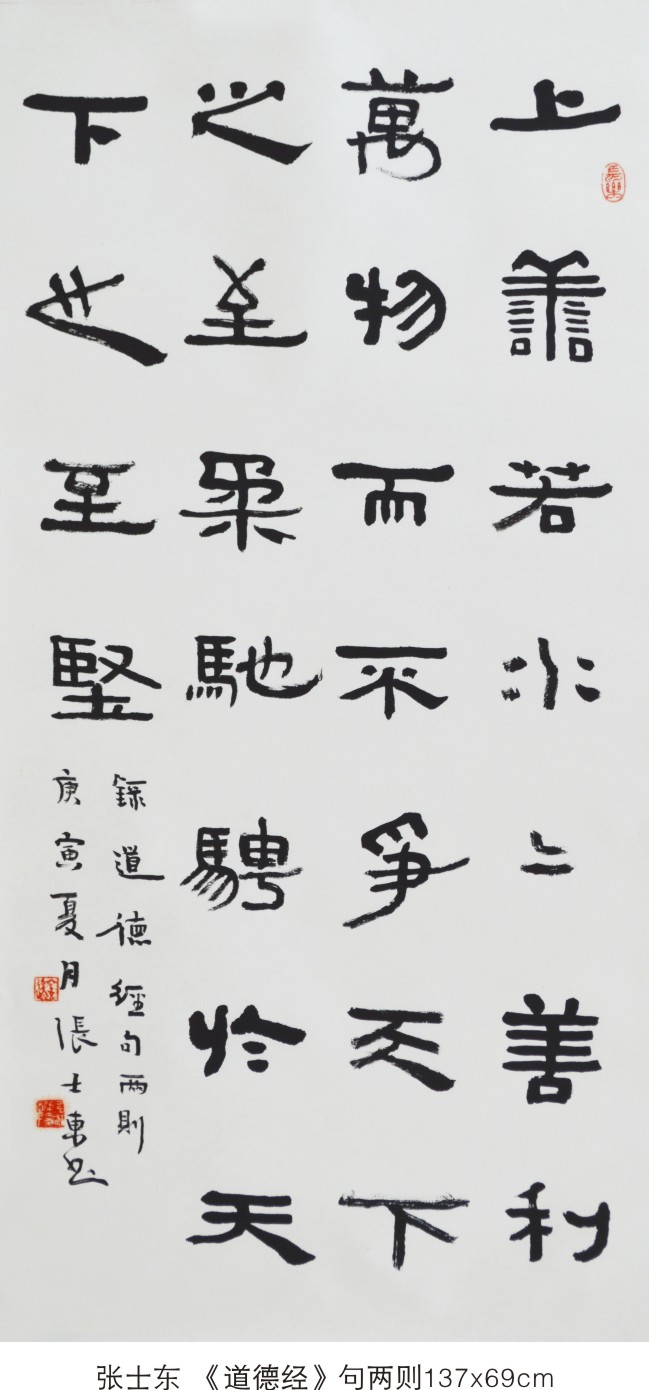 上善若水〻善利
萬物而不爭天下
之至柔馳騁於天
下之至堅
錄道德經句兩則
庚寅夏月張士東书
张士东 《道德经》句两则137x69cm